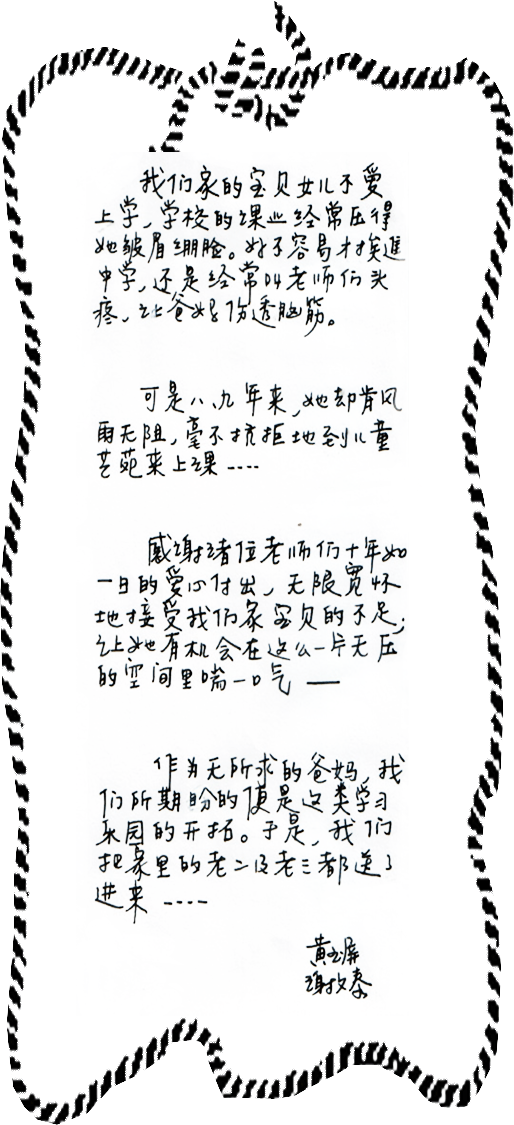 我们家的宝贝女儿不爱
上学，学校的课业经常压得
她皱眉绷脸。好不容易才挨進
中学，还是经常叫老师们头
疼，让爸妈伤透脑筋。
可是八、九年来，她却肯风
雨无阻，毫不抗拒地到儿童
艺苑来上课....
感谢诸位老师们十年如
一日的爱心付出，无限宽怀
地接受我们家宝贝的不足；
让她有机会在这么一片无压
的空间里喘一口气——
作为无所求的爸妈，我
们所期盼的便是这类学习
乐园的开拓。于是，我们
把家里的老二及老三都送了
进来....
黄玉屏
谢牧泰